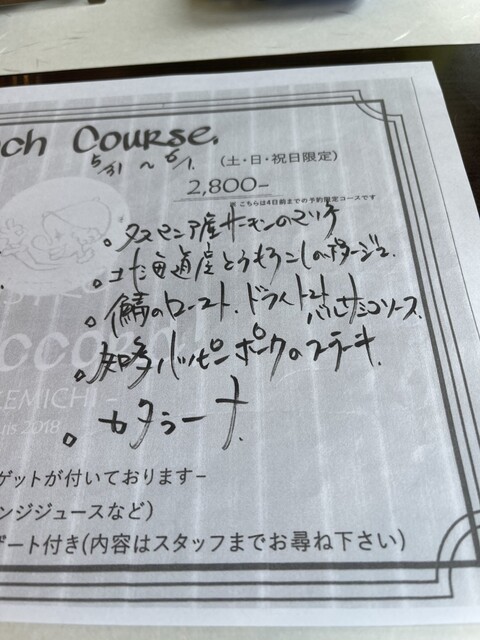 ch Course.
5/31 ～ 6/1. (土・日・祝日限定)
2,800-
※こちらは4日前までの予約限定コースです
。タスマニア産サーモンのマリネ
。北海道産とうもろこしのポタージュ.
。鯖のロースト、ドライトマト
バルサミコソース.
。知多ハッピーポークのステーキ.
。カタラーナ.
ccorn
KEMICHI -
uis 2018
ゲットが付いております−
ンジジュースなど）
ザート付き(内容はスタッフまでお尋ね下さい)